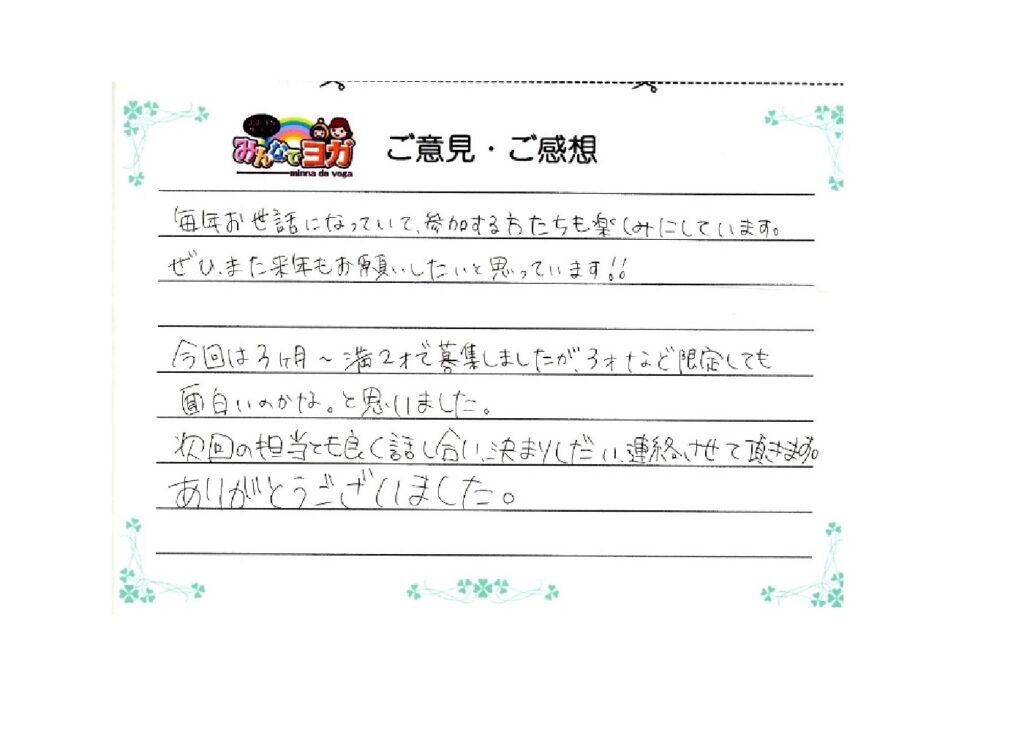 みんなでヨガ
minna de yoga
ご意見・ご感想
毎年お世話になっていて、参加する方たちも楽しみにしています。
ぜひ、また来年もお願いしたいと思っています!!
今回は3ヶ月～満2才で募集しましたが、3才など限定しても
面白いのかな。と思いました。
次回の担当とも良く話し合い、決まりしだい、連絡させて頂きます。
ありがとうございました。